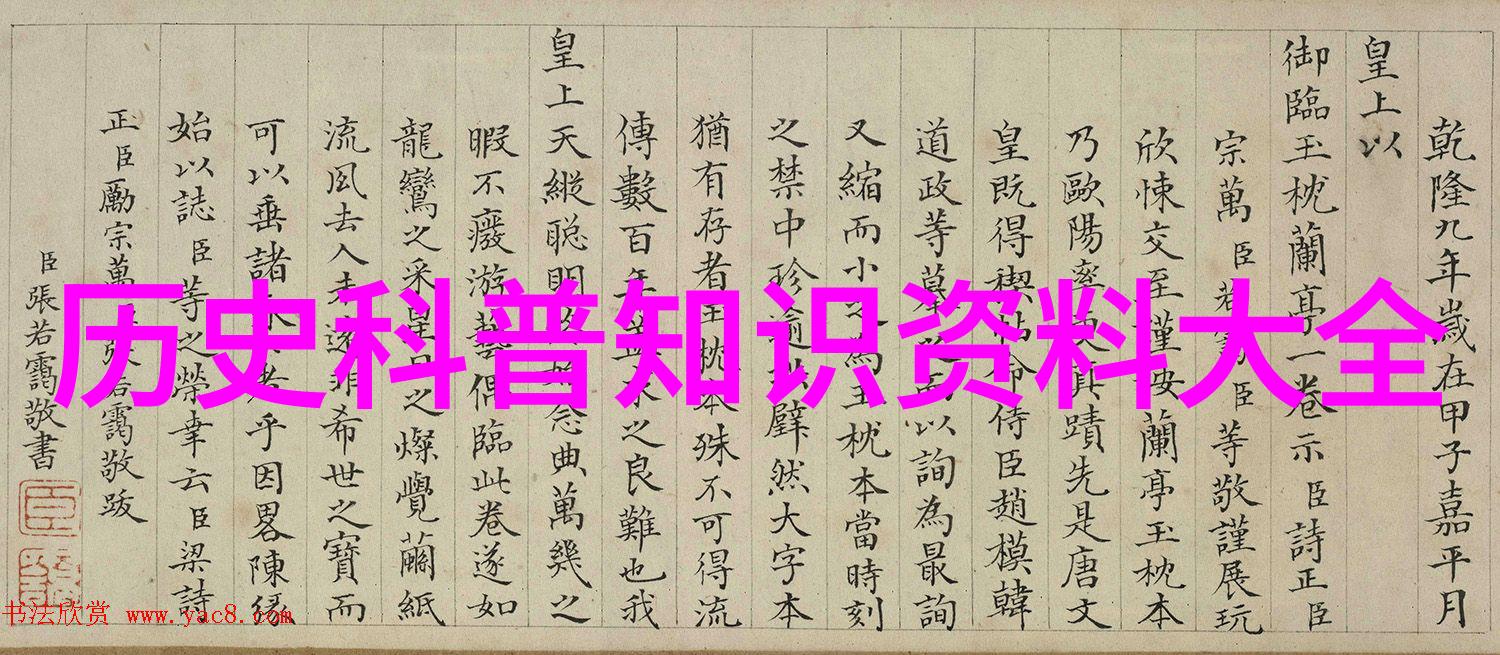 乾隆九年歲在甲子嘉平月
皇上以
御臨玉枕蘭亭一卷示臣詩正臣
宗萬臣若靄臣等敬謹展玩
欣悚交至謹按蘭亭玉枕本
乃歐陽率更真蹟先是唐文
皇既得禊帖命侍臣趙模韓
道政等摹以詢為最詢
又縮而小之為玉枕本當時刻
之禁中珍逾拱璧然大字本
猶有存者玉枕本殊不可得流
傳數百年求之良難也我
皇上天縱聰明念典萬幾之
暇不廢游藝偶臨此卷遂如
龍鸞之采星日之燦覺繭紙
流風去人未遠非希世之寶而
可以垂諸永者乎因畧陳緣
始以誌臣等之榮幸云臣梁詩
正臣勵宗萬臣張若靄敬跋
臣張若靄敬書
历史科普知识资料大全
书法欣赏 www.yac8.com